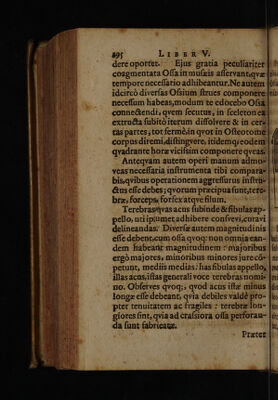 295 LIBER V.
dere oportet. Ejus gratia peculiariter
coagmentata Ossa in musæis asservant, quæ
tempore necessario adhibeantur. Ne autem
idcircò diversas Ossium strues componere
necessum habeas, modum te edocebo Ossa
connectendi, quem secutus, in sceleton ex
extructa subitò iterum dissolvere & in cer-
tas partes, tot fermè, in quot in Osteotome
corpus diremi, distingvere, itidemq; eodem
quadrante horæ vicissim componere queas.
Anteqvam autem operi manum admo-
veas necessaria instrumenta tibi compara-
bis, qvibus operationem aggressurus instru-
ctus esse debes; qvorum præcipua sunt, tere-
bræ, forceps, forfex atqve filum.
Terebras, qvas acus subinde & fibulas ap-
pello, uti ipsumet adhibere consvevi, curavi
delineandas. Diversæ autem magnitudinis
esse debent, cum ossa quoq; non omnia ean-
dem habeant magnitudinem: majoribus
ergò majores, minoribus minores jure có-
petunt, mediis mediæ. has fibulas appello,
illas acus, istas generali voce terebras nomi-
no. Observes qvoq;, qvod acus istæ minus
longæ esse debeant, qvia debiles valdè pro-
pter tenuitatem ac fragiles: terebræ lon-
giores sint, qvia ad crassiora ossa perforan-
da sunt fabricatæ.
Præter